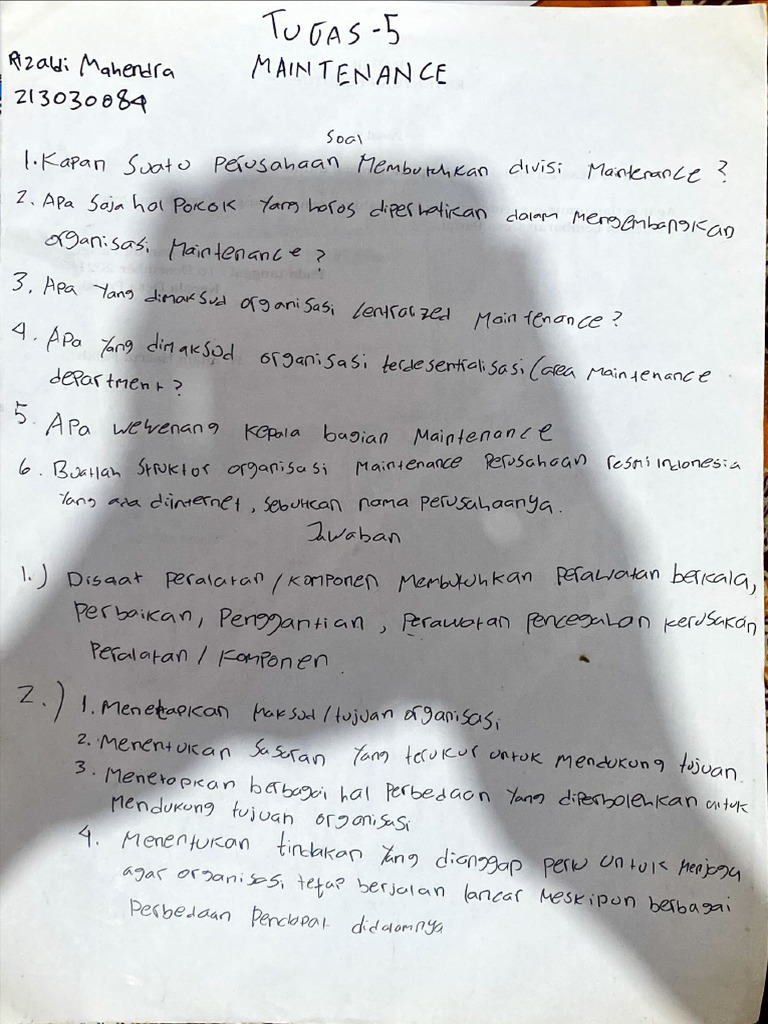 TUGAS-5
MAINTENANCE
Rizaldi Mahendra
213030084
Soal
1. Kapan Suatu Perusahaan Membutuhkan divisi Maintenance ?
2. Apa Saja hal Pokok Yang harus diperhatikan dalam Mengembangkan
organisasi Maintenance ?
3. Apa Yang dimaksud organisasi Centralized Maintenance ?
4. Apa Yang dimaksud organisasi terdesentralisasi (area Maintenance
department ?
5. Apa wewenang kepala bagian Maintenance
6. Buatlah Struktor organisasi Maintenance Perusahaan resmi indonesia
Yang ada diinternet, Sebutkan nama perusahaanya.
Jawaban
1.) Disaat Peralatan / Komponen Membutuhkan Perawatan berkala,
Perbaikan, Penggantian , Perawatan Pencegahan kerusakan
Peralatan / Komponen
2.) 1. Menetapkan Maksud / tujuan organisasi
2. Menentukan Sasaran Yang terukur untuk Mendukung tujuan
3. Menetapkan berbagai hal Perbedaan Yang diperbolehkan untuk
Mendukung tujuan organisasi
4. Menentukan tindakan Yang dianggap perlu Untuk Menjaga
agar organisasi tetap berjalan lancar Meskipun berbagai
Perbedaan Pendapat didalamnya